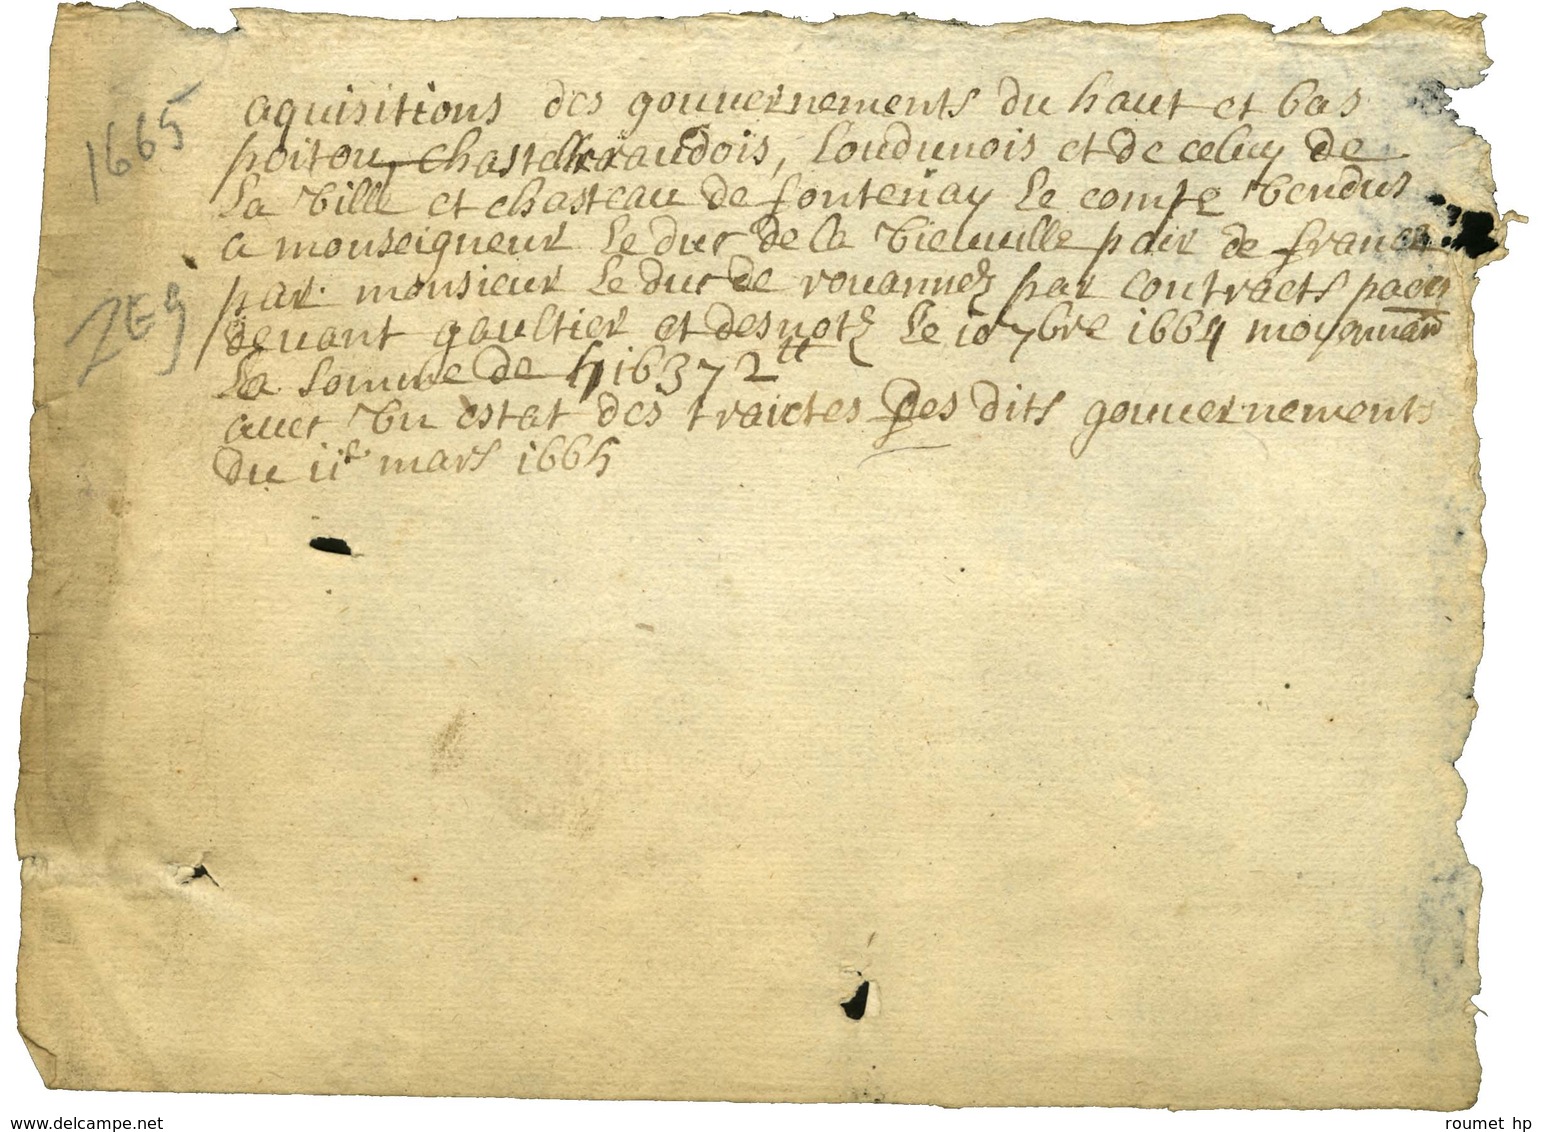 1665
aquisitions des gouuernements du haut et bas
poitou, chastelleraudois, Loudunois et de celuy de
La Ville et chasteau de fontenay Le comte Vendus
a monseigneur Le duc de la Vieuuille pair de france
par monsieur Le duc de rouannez par contracts
deuant gaultier et desnotz Le 10 7bre 1664 moyennan
La somme de 516372 tt
auec Vn estat des traictes des dits gouuernements
du 11e mars 1665
www.delcampe.net
roumet hp